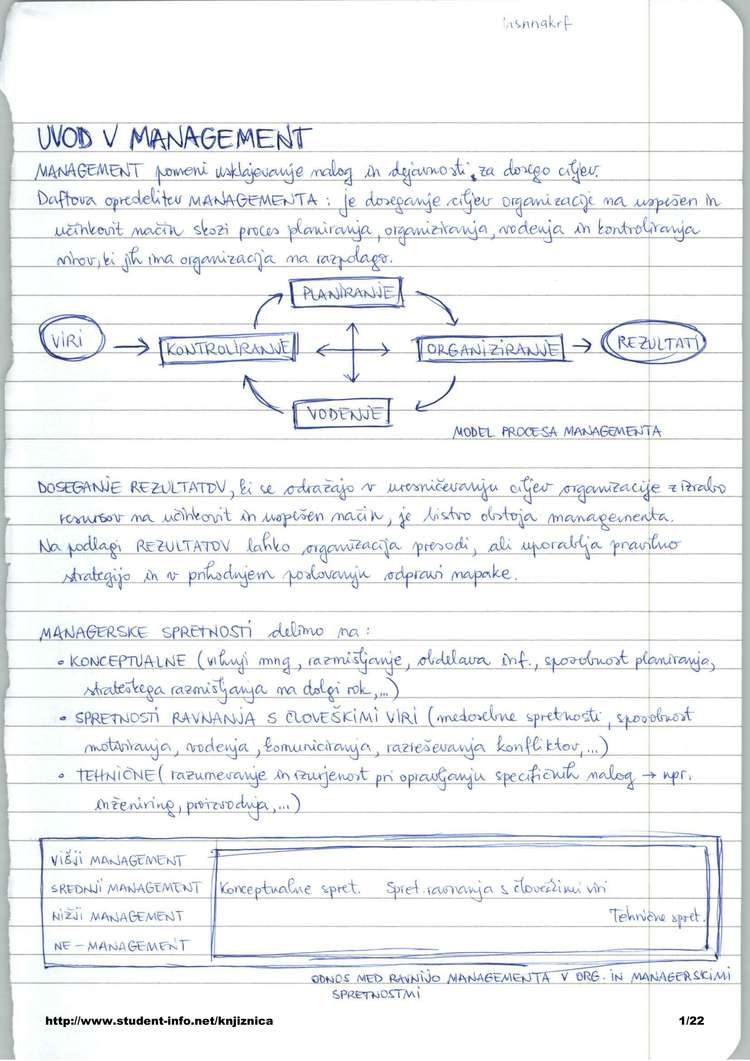 lisnnakrf
UVOD V MANAGEMENT
MANAGEMENT pomeni usklajevanje nalog in dejavnosti za dosego ciljev.
Daftova opredelitev MANAGEMENTA : je doseganje ciljev organizacije na uspešen in
učinkovit način skozi proces planiranja, organiziranja, vodenja in kontroliranja
virov, ki jih ima organizacija na razpolago.
PLANIRANJE
VIRI
KONTROLIRANJE
ORGANIZIRANJE
REZULTATI
VODENJE
MODEL PROCESA MANAGEMENTA
DOSEGANJE REZULTATOV, ki se odražajo v uresničevanju ciljev organizacije z izrabo
resursov na učinkovit in uspešen način, je bistvo obstoja managementa.
Na podlagi REZULTATOV lahko organizacija presodi, ali uporablja pravilno
strategijo in v prihodnjem poslovanju odpravi napake.
MANAGERSKE SPRETNOSTI delimo na :
• KONCEPTUALNE (vrhnji mng, razmišljanje, obdelava inf., sposobnost planiranja,
strateškega razmišljanja na dolgi rok,...)
• SPRETNOSTI RAVNANJA S ČLOVEŠKIMI VIRI (medosebne spretnosti, sposobnost
motiviranja, vodenja, komuniciranja, razreševanja konfliktov,...)
• TEHNIČNE ( razumevanje in izurjenost pri opravljanju specifičnih nalog → npr.
inženiring, proizvodnja,...)
VIŠJI MANAGEMENT
SREDNJI MANAGEMENT Konceptualne spret. Spret. ravnanja s človeškimi viri
NIŽJI MANAGEMENT Tehnične spret.
NE - MANAGEMENT
ODNOS MED RAVNIJO MANAGEMENTA V ORG. IN MANAGERSKIMI
SPRETNOSTMI
http://www.student-info.net/knjiznica 1/22